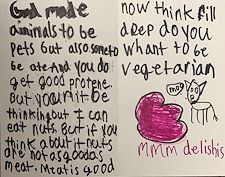 God made
ainimals to be
Pets but also someto
be ate And you do
get good protene.
But you mit be
thinking but I can
eat nuts But if you
think about it nuts
are not as good as
meat. Meat is good
now think rill
deep do you
whant to be
vegetarian
moo
MMM delishis